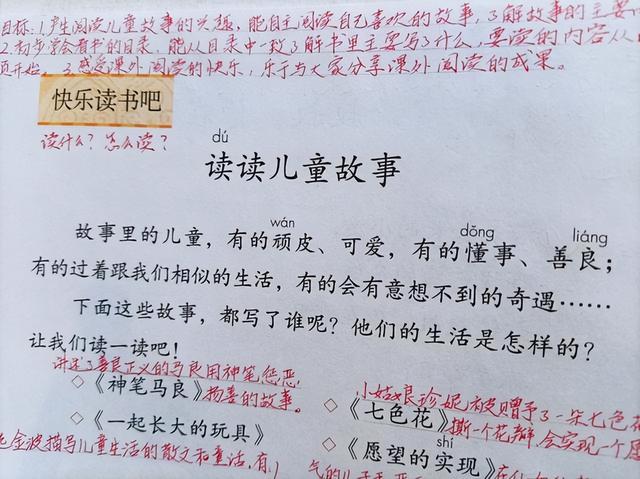 目标:1.产生阅读儿童故事的兴趣,能自主阅读自己喜欢的故事,了解故事的主要
2.初步学会看书的目录,能从目录中一粒了解书里主要写了什么,要读的内容从
页开始。3.感受课外阅读的快乐,乐于与大家分享课外阅读的成果。
快乐读书吧
读什么?怎么读?
dú
读读儿童故事
wán dǒng liáng
故事里的儿童,有的顽皮、可爱,有的懂事、善良;
有的过着跟我们相似的生活,有的会有意想不到的奇遇……
下面这些故事,都写了谁呢?他们的生活是怎样的?
让我们读一读吧!
讲述了善良正义的马良用神笔,惩恶
◇《神笔马良》扬善的故事。
小姑娘珍妮,被赠予了一朵七色花
◇《七色花》撕一个花瓣,会实现一个愿
◇《一起长大的玩具》
shí
◇《愿望的实现》
金波描写儿童生活的散文和童话,有